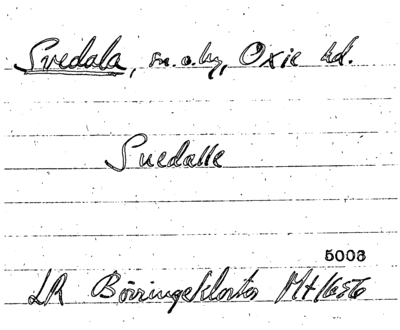 Svedala, sn. o. by, Oxie hd.
Suedalle
5006
LR Börringekloster Mt 1656